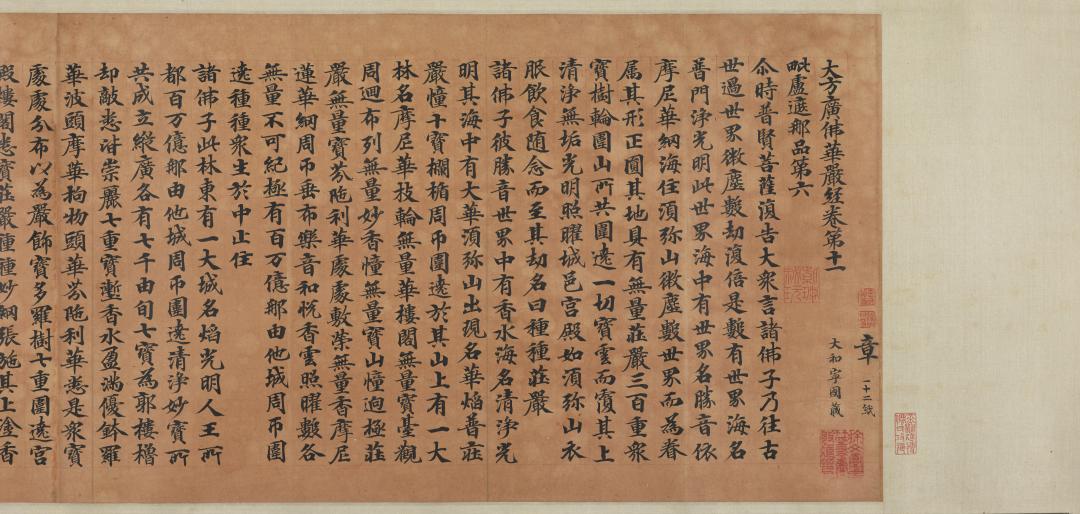 章 二十二紙
大和寧國藏
大方廣佛華嚴經卷第十一
毗盧遮那品第六
尒時普賢菩薩復告大衆言諸佛子乃往古
世過世界微塵數劫復倍是數有世界海名
普門淨光明此世界海中有世界名勝音依
摩尼華網海住須弥山微塵數世界而為眷
属其形正圓其地具有無量莊嚴三百重衆
寶樹輪圍山所共圍遶一切寶雲而覆其上
清淨無垢光明照曜城邑宮殿如須弥山衣
服飲食随念而至其劫名曰種種莊嚴
諸佛子彼勝音世界中有香水海名清淨光
明其海中有大華須弥山出現名華焰普莊
嚴幢十寶欄楯周帀圍遶於其山上有一大
林名摩尼華枝輪無量華樓閣無量寶臺觀
周迴布列無量妙香幢無量寶山幢迥極莊
嚴無量寶芬陁利華處處敷榮無量香摩尼
蓮華網周帀垂布樂音和悅香雲照曜數各
無量不可紀極有百万億那由他城周帀圍
遶種種衆生於中止住
諸佛子此林東有一大城名焰光明人王所
都百万億那由他城周帀圍遶清淨妙寶所
共成立縱廣各有七千由旬七寶為郭樓櫓
却敵悉皆崇麗七重寶壍香水盈滿優鉢羅
華波頭摩華拘物頭華芬陁利華悉是衆寶
處處分布以為嚴飾寶多羅樹七重圍遶宮
殿樓閣悉寶莊嚴種種妙網張施其上塗香